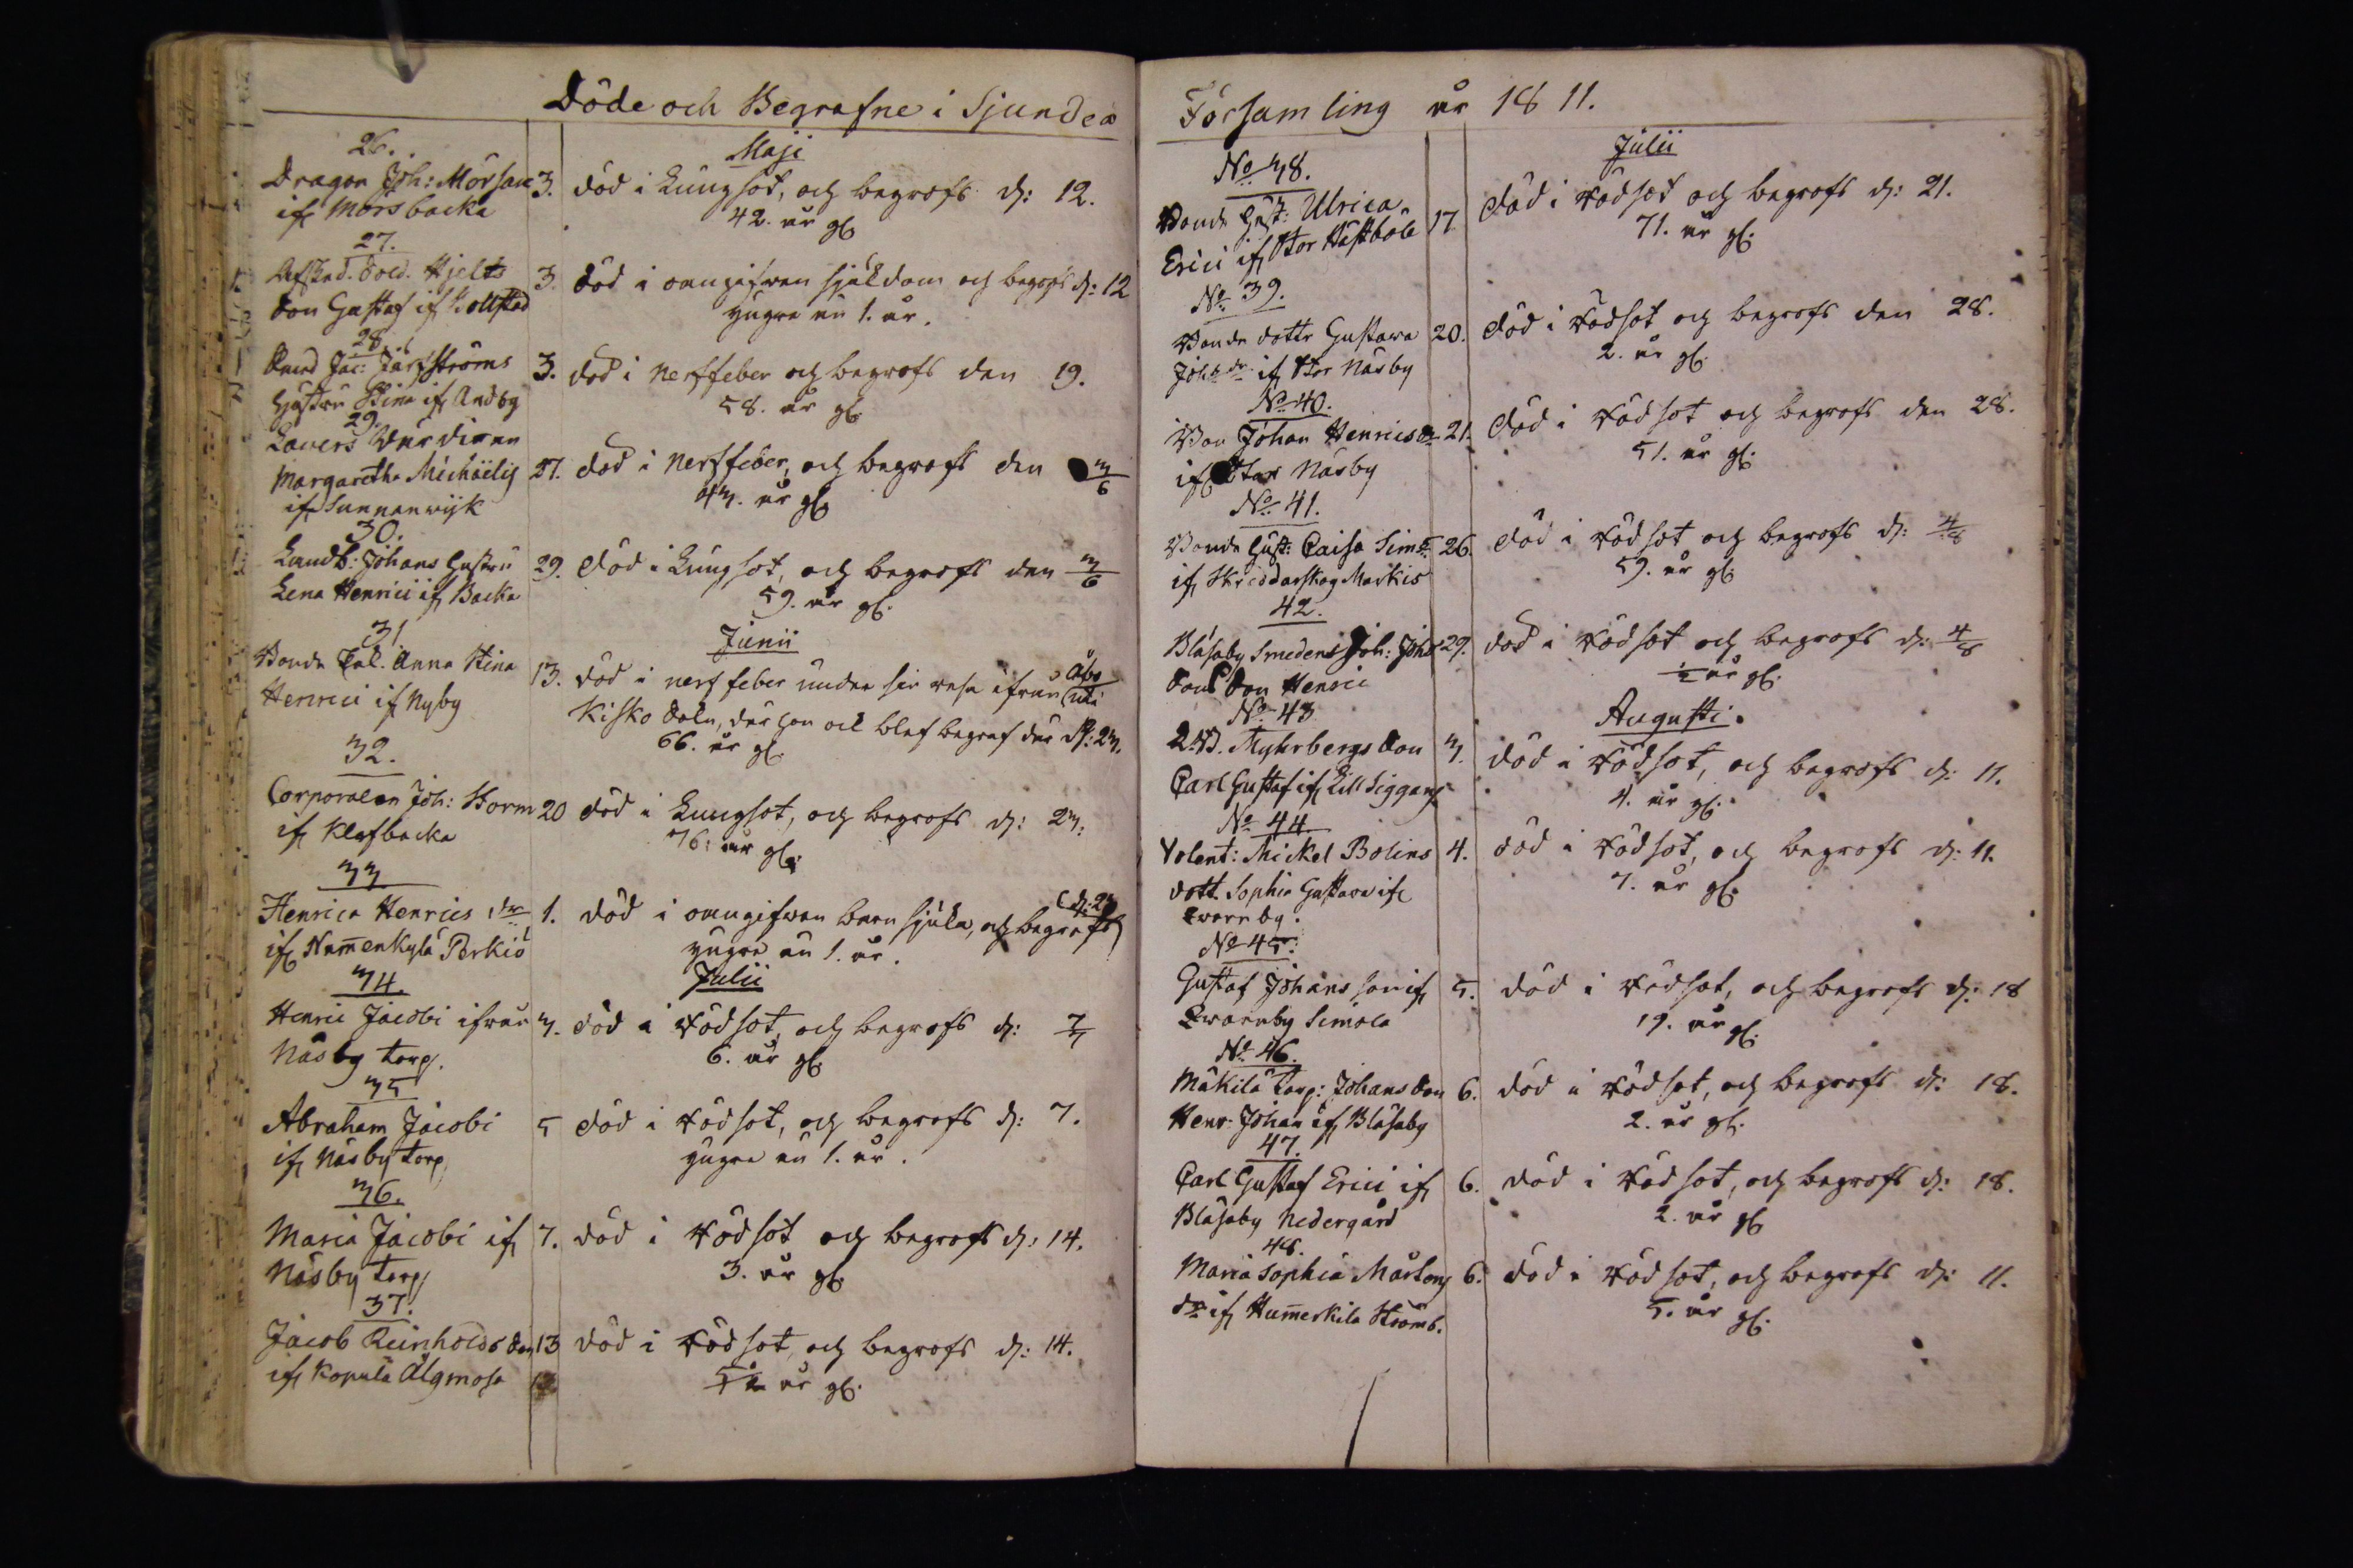 Döde och Begrafne i Sjundeå
Maji
26.
Dragon Joh: Morsare 3. död i Lungsot, och begrofs d: 12.
if Morsbacka 42. år gl.
27.
Afsked. Sold. Hjelts 3. död i oangifwen sjukdom och begrofs d: 12
Son Gustaf if Kollsted yngre än 1. år.
28.
Jac: Järfströms 3. död i Nerffeber och begrofs den 19.
hustru Stina if Andby 58. år gl.
29.
Margaretha Michaelis 27. död i Nerffeber, och begrofs den 3/6
if Sunnanwijk 43. år gl.
30.
Landb: Johans hustru 29. död i Lungsot, och begrofs den 3/6
Lena Henrici if Backa 59. år gl.
Junii
31.
Bonde Anna Stina 13. död i nerffeber under sin resa ifrån Åbo
Henrici if Nyby Kisko Soln, der hon ock blef begraf den d: 23.
66. år gl.
32.
Corporalen Joh: Storm 20 död i Lungsot, och begrofs d: 23.
if Klefbacka 76. år gl.
33.
Henrica Henrics dr 1. död i oangifwen barn sjuka, och begrofs d: 23
if Humenkylä Perkiö yngre än 1. år.
Julii
34.
Henric Jacobi ifrån 3. död i Rödsot, och begrofs d: 7/7
Näsby torp. 6. år gl.
35
Abraham Jacobi 5 död i Rödsot, och begrofs d: 7.
if Näsby torp yngre än 1. år.
36.
Maria Jacobi if 7. död i Rödsot och begrofs d: 14.
Näsby torp 3. år gl.
37.
Jacob Reinholds Son 13 död i Rödsot, och begrofs d: 14.
if Kopula Älgmosa år gl.
Församling år 1811.
Julii
No 38.
Bonde hust: Ulrica 17. död i Rödsot och begrofs d: 21.
Erici if Stor Hästböle 71. år gl.
No 39.
Bonde dottr Gustava 20. död i Rödsot och begrofs den 28.
Johsdr if Stor Näsby 2. år gl.
No 40.
Bon Johan Henrics 21. död i Rödsot och begrofs den 28.
if Stor Näsby 51. år gl.
No 41.
Bonde hust: Caisa Sims 26. död i Rödsot och begrofs d: 4/8
if Skreddarskog Markis 59. år gl.
42.
Blåsaby Smedens Joh: Johs 29. död i Rödsot och begrofs d: 4/8
Sons Son Henric 1/2 år gl.
Augusti.
No 43
Myhrbergs Son 3. död i Rödsot, och begrofs d: 11.
Carl Gustaf if Lill Siggans 4. år gl.
No 44
Volent: Mickel Bolins 4. död i Rödsot, och begrofs d: 11.
dott. Sophia Gustava if 7. år gl.
Qvarnby.
No 45.
Gustaf Johans son if 5. död i Rödsot, och begrofs d: 18
Qvarnby Simola 19. år gl.
No 46.
Mäkilä torp: Johans Son 6. död i Rödsot, och begrofs d: 18.
Henr: Johan if Blåsaby 2. år gl.
47.
Carl Gustaf Erici if 6. död i Rödsot, och begrofs d: 18.
Blåsaby Nedergård 2. år gl.
48.
Maria Sophia Mårtens 6. död i Rödsot, och begrofs d: 11.
dr if Humerkila Strömb. 5. år gl.